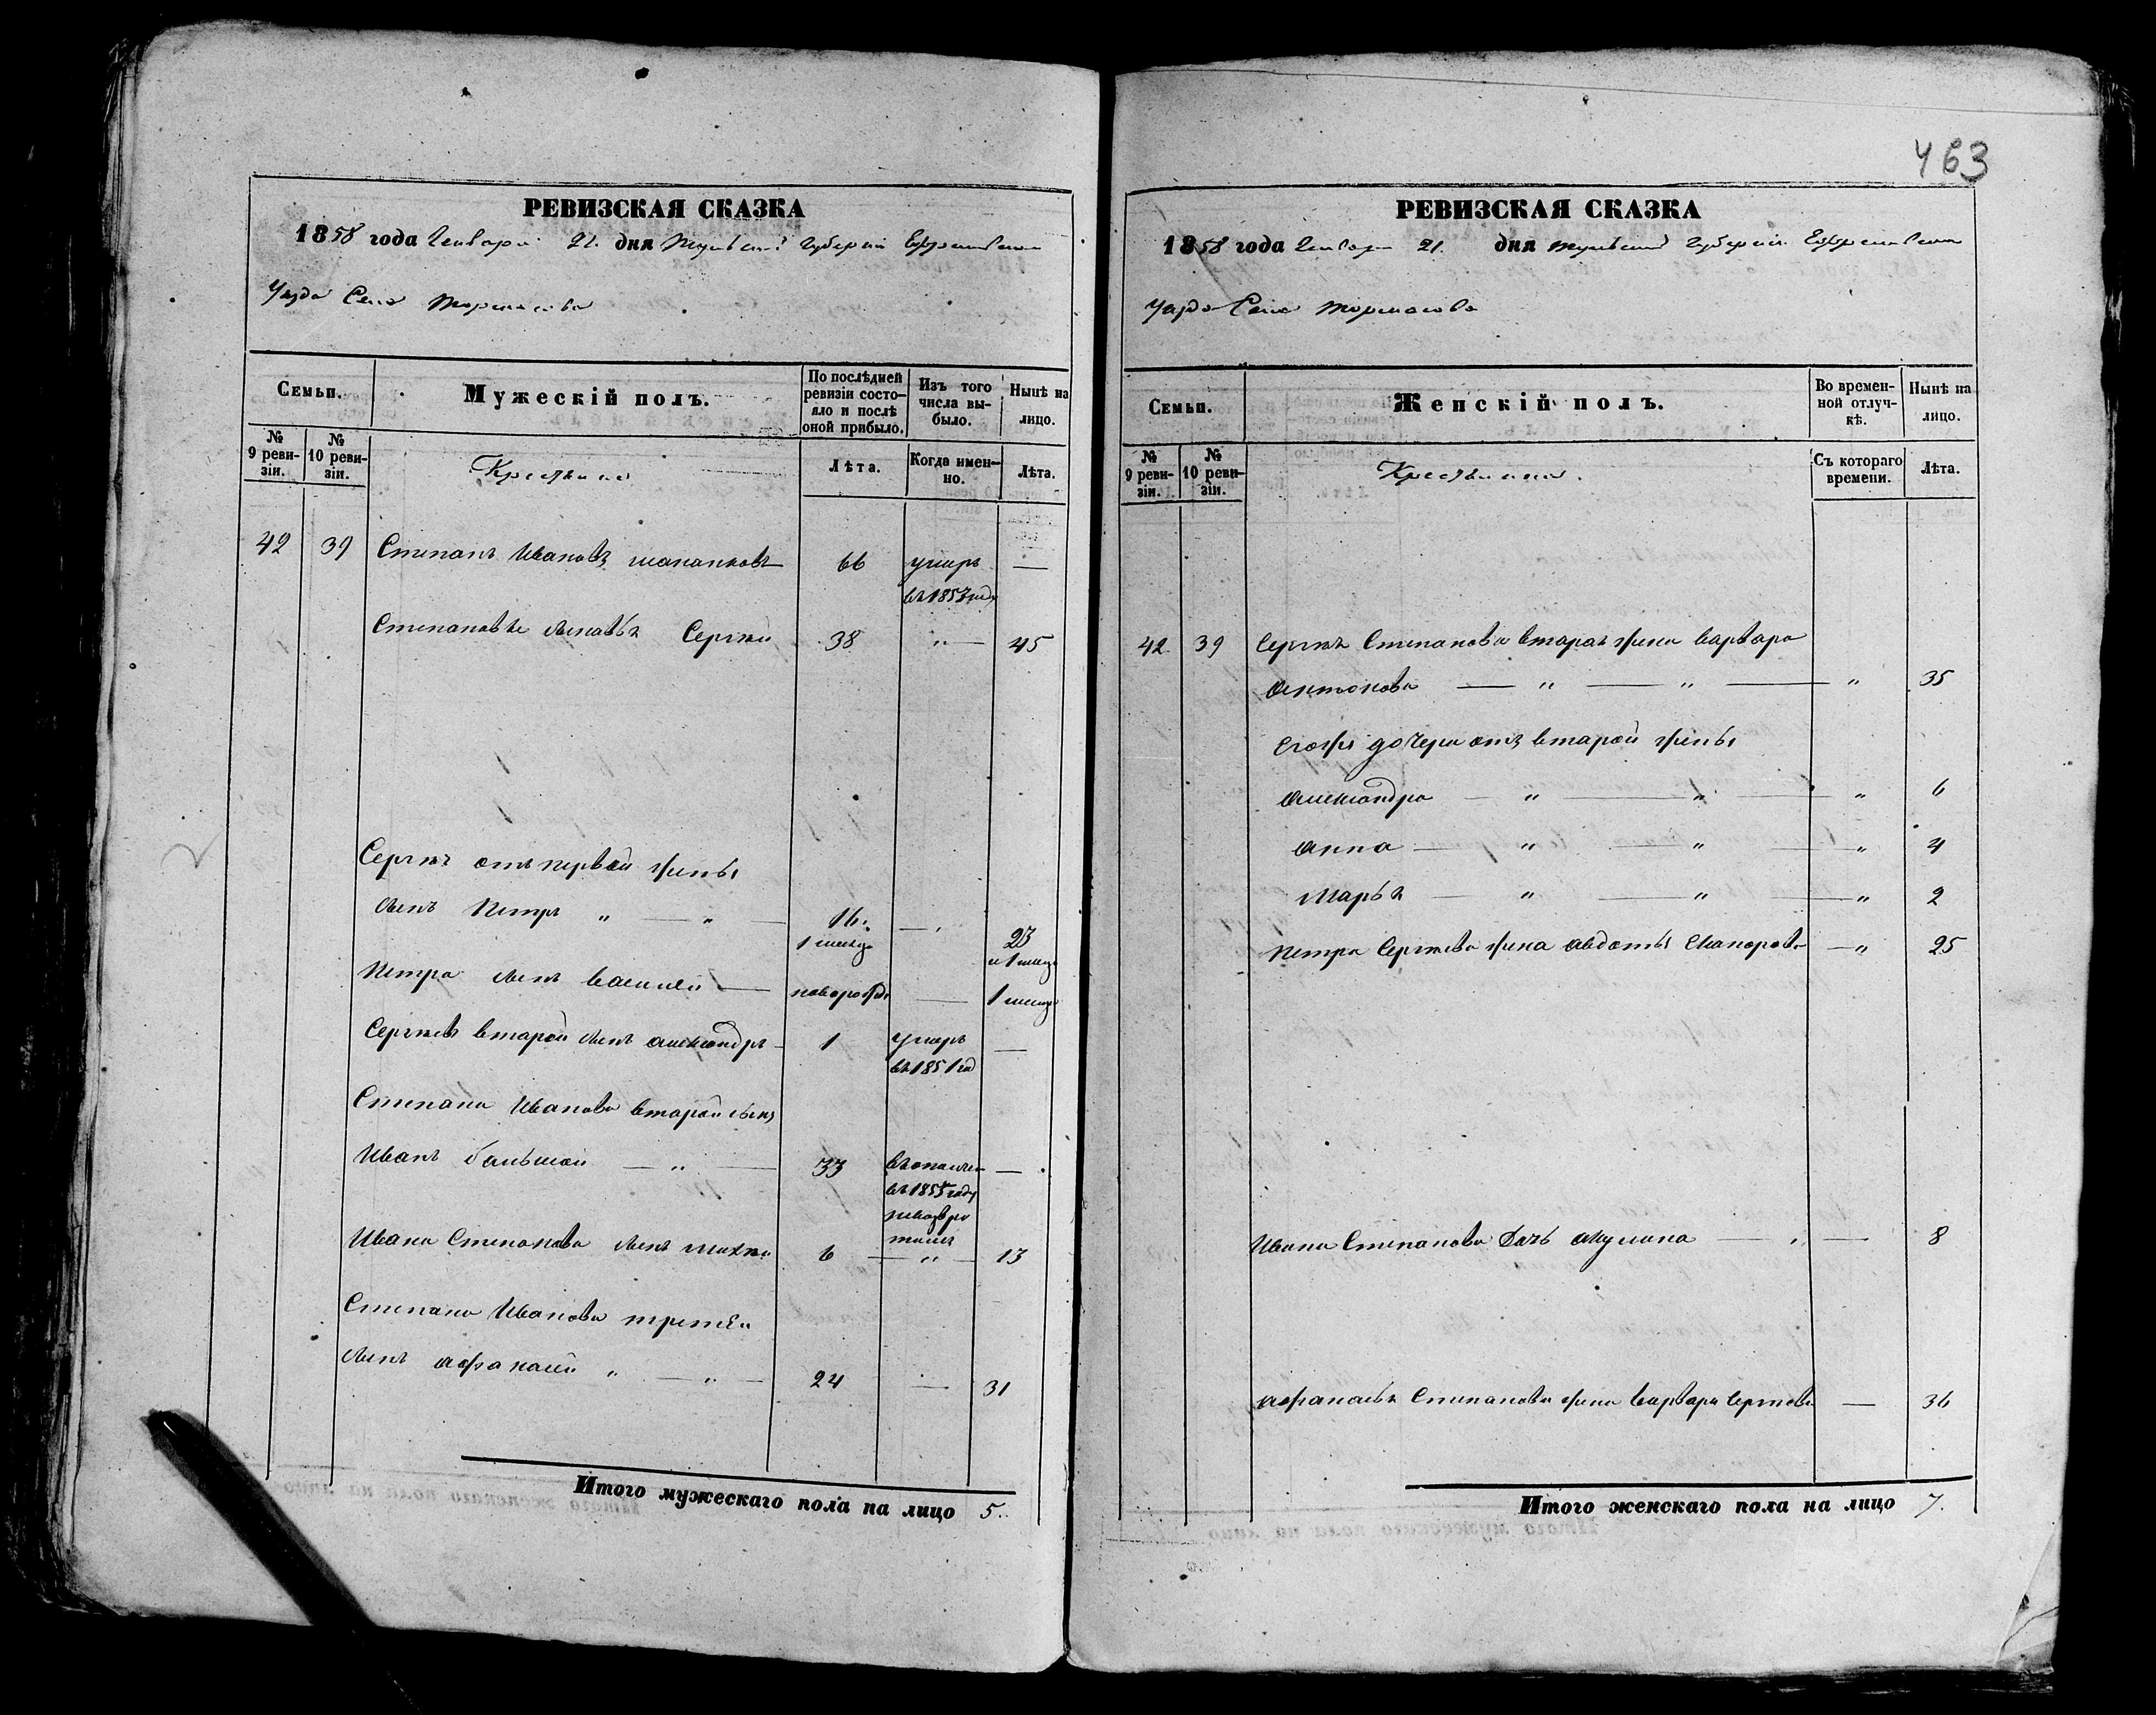 463
РЕВИЗСКАЯ СКАЗКА
1858 года Генваря 21. дня Тульской Губернии Ефремовского
Уезда Села Тормасова
Семьи.
Мужескій полъ.
По послѣдней ревизіи состояло и послѣ оной прибыло.
Изъ того числа выбыло.
Нынѣ на лицо.
№ 9 ревизіи.
№ 10 ревизіи.
Крестьяне
Лѣта.
Когда именно.
Лѣта.
42 39 Степанъ Ивановъ 66 умеръ —
въ 1853 году
Степановы сыновья Сергей 38 „ — 45
Сергея отъ первой жены
сынъ Петръ „ — „ — 16. — 23
1 месяц и 1 месяц
Петра сынъ Василей — новорожд — 1 месяц
Сергеев второй сынъ Александръ 1 умеръ —
въ 1851 год
Степана Иванова второй сынъ
Иванъ большой — „ — 33 въ ополчен —
въ 1855 году
невозвра
тился
Ивана Степанова сынъ 6 — „ — 13
Степана Иванова третей
сынъ Афанасей „ — „ — 24 — 31
Итого мужескаго пола на лицо 5.
РЕВИЗСКАЯ СКАЗКА
1858 года Генваря 21. дня Тульской Губернии Ефремовского
Уезда Села Тормасова
Семьи.
Женскій полъ.
Во временной отлучкѣ.
Нынѣ на лицо.
№ 9 ревизіи.
№ 10 ревизіи.
Крестьянки.
Съ котораго времени.
Лѣта.
42 39 Сергея Степанова вторая жена Варвара
Антонова — „ — „ — „ 35
Егожъ дочери отъ второй жены
Александра — „ — „ — „ 6
Анна — „ — „ — „ 4
Марья — „ — „ — „ 2
Петра Сергеева жена Авдотья — „ 25
Ивана Степанова дочь Акулина — „ — 8
Афанасья Степанова жена Варвара Сергеева — 36
Итого женскаго пола на лицо 7.